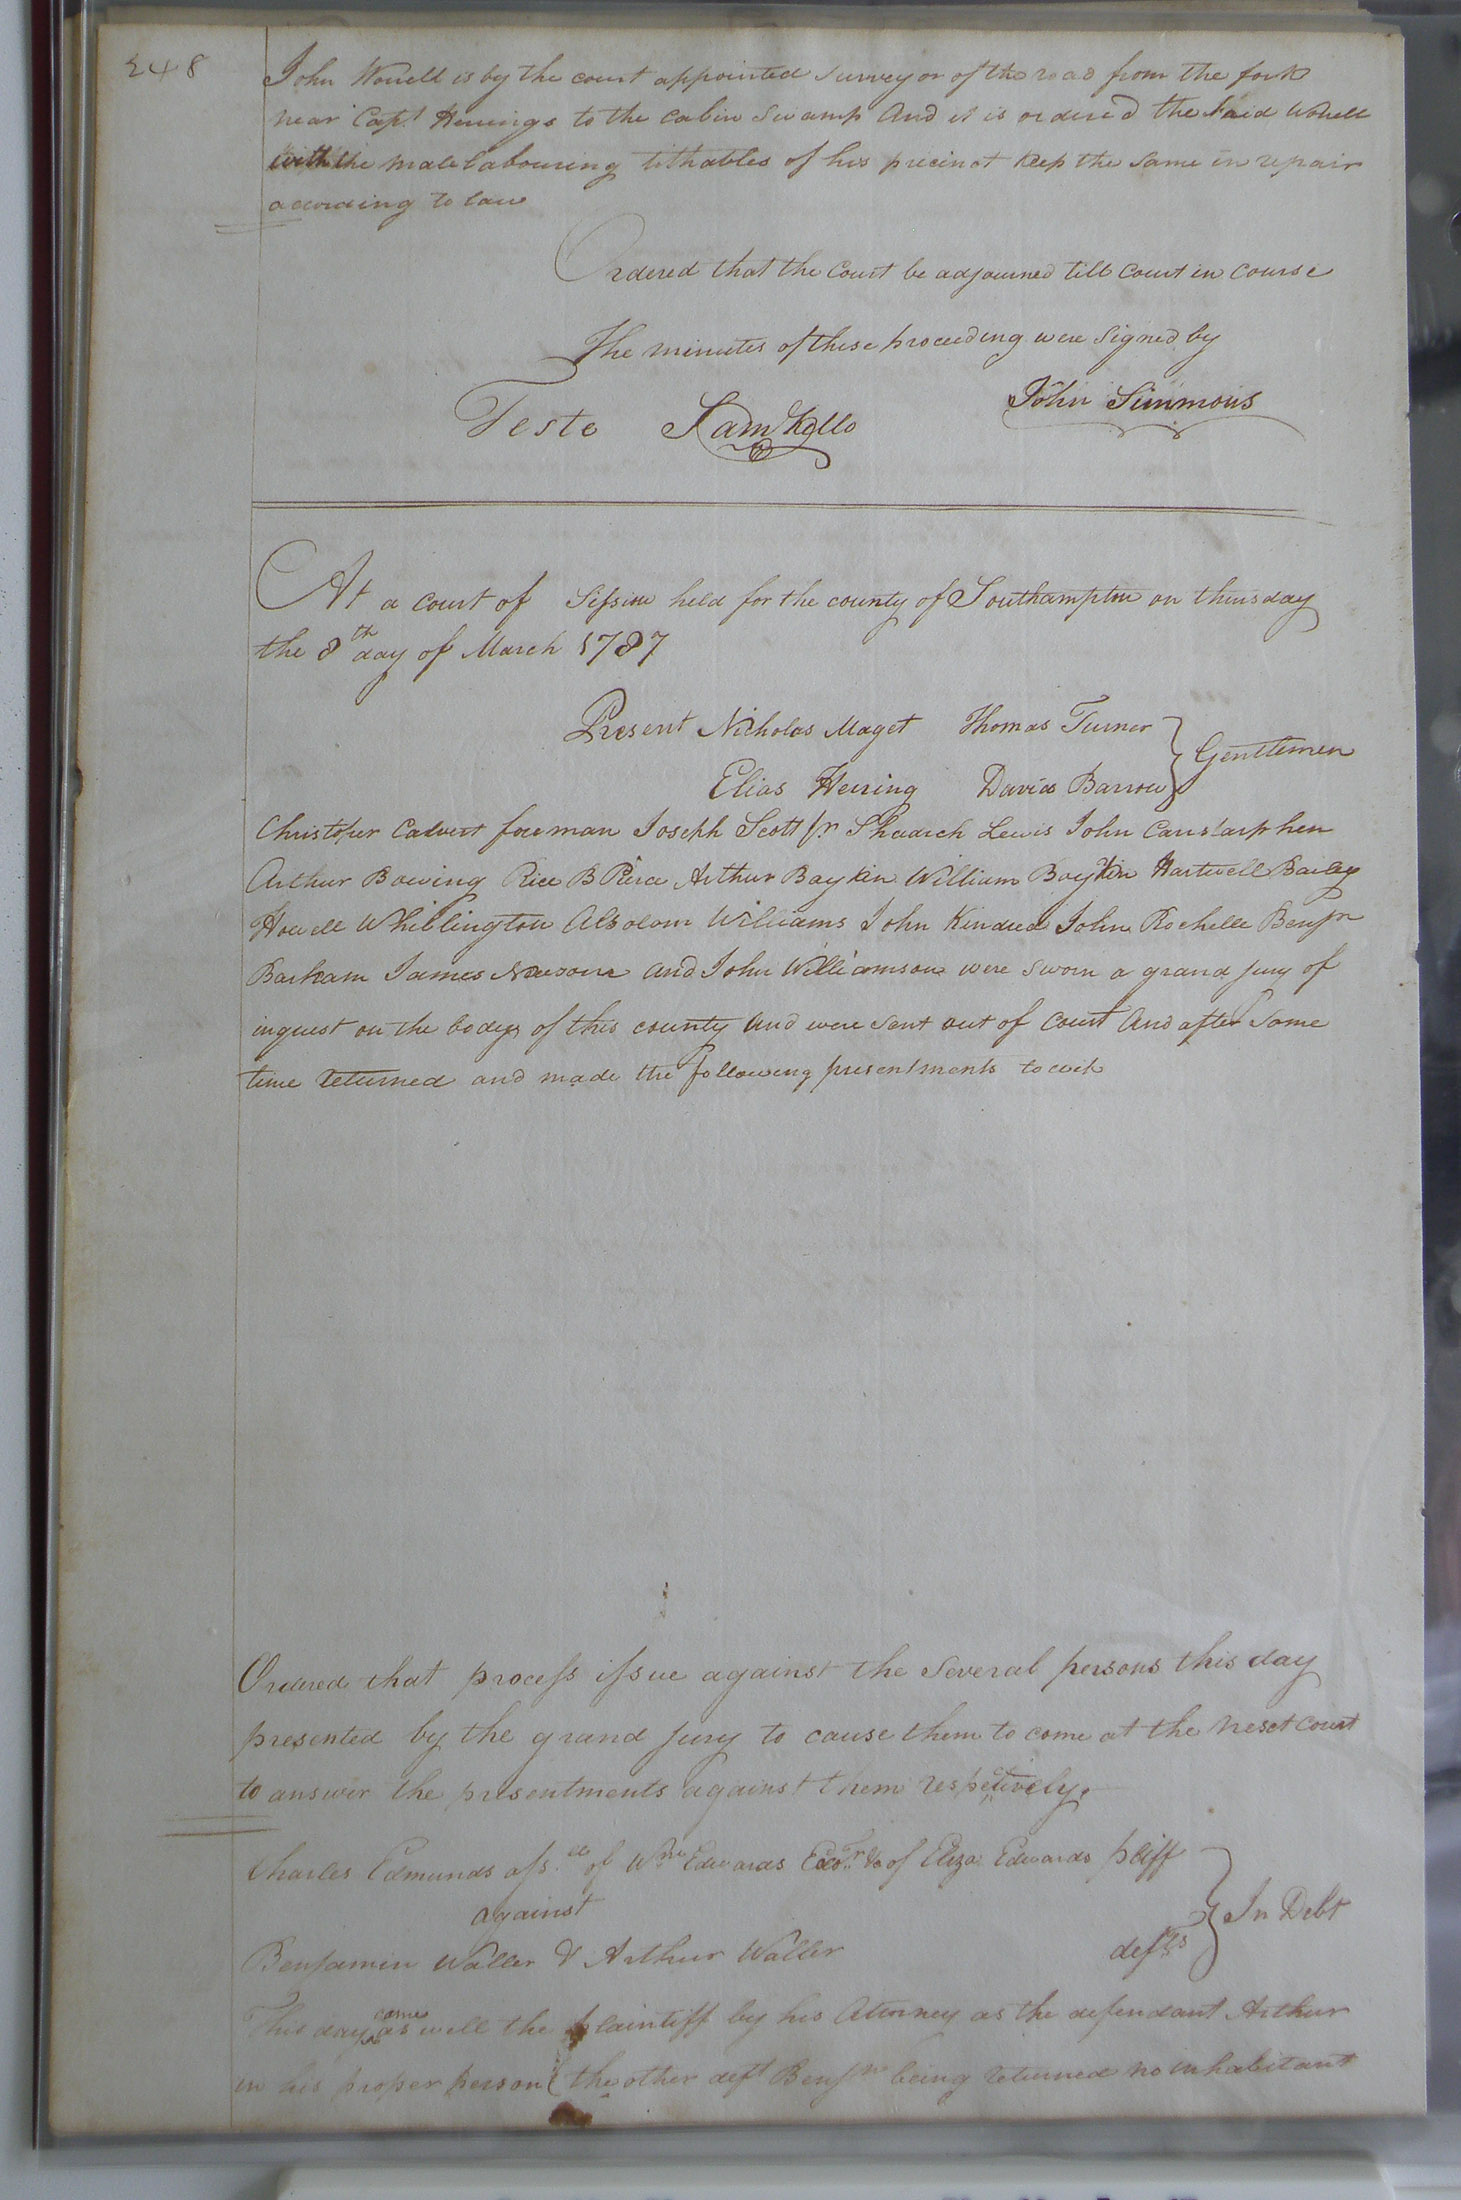 248
John Worrell is by the court appointed Surveyor of the road from the fork
near Capt Herrings to the cabin Swamp And it is ordered the said Worrell
with the male labouring tithables of his precinct keep the same in repair
according to law
Ordered that the Court be adjourned till Court in Course
The minutes of these proceeding were Signed by
John Simmons
Teste Saml Kello
At a Court of Session held for the county of Southampton on thursday
the 8th day of March 1787
Present Nicholas Maget Thomas Turner
Gentlemen
Elias Herring David Barrow
Christopher Calvert foreman Joseph Scott jr Shadrach Lewis John Carstarphen
Arthur Bowing Rice B Pierce Arthur Boykin William Boykin Hartwell Bailey
Howell Whitlington Absolom Williams John Kindred John Rochelle Benjn
Barham James Newsom and John Williamson were sworn a grand jury of
inquest on the body of this county And were sent out of Court And after Some
time returned and made the following presentments to wit
Ordered that process issue against the Several persons this day
presented by the grand jury to cause them to come at the next Court
to answer the presentments against them respectively.
Charles Edmunds ass.ee of Wm Edwards Exo.r &c of Eliza Edwards pltiff
against
In Debt
Benjamin Waller & Arthur Waller defts
This day came as well the plaintiff by his Attorney as the defendant Arthur
in his proper person (the other deft Benjn being returned no inhabitant